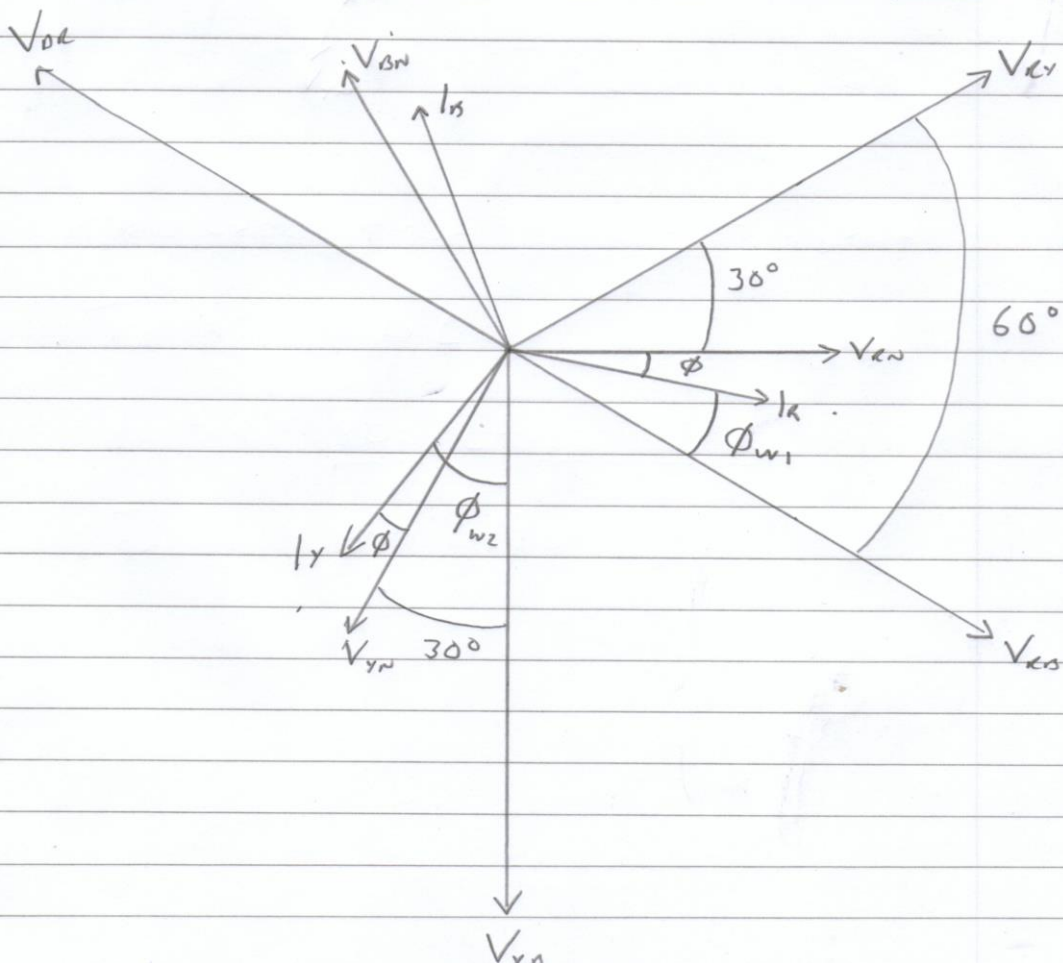 V_BR
V_BN
I_B
V_RY
30°
60°
V_RN
φ
I_R
φ_W1
φ_W2
I_Y
φ
V_YN 30°
V_RB
V_YB